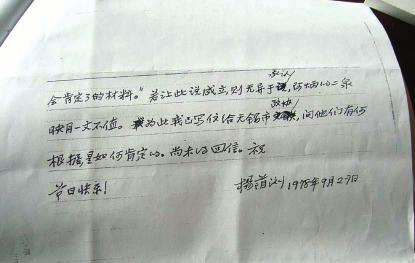 承认
会肯定了的材料。"若让此说成立,则无异于,阿炳的二泉
政协
映月一文不值。为此我已写信给无锡市,问他们有何
根据是如何肯定的。尚未得回信。祝
节日快乐! 杨 1978年9月29日